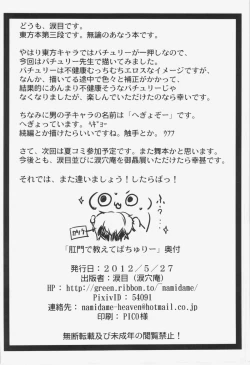 どうも、涙目です。
東方本第三段です。無論のあなう本です。
やはり東方キャラではパチュリーが一押しなので、
今回はパチュリー先生で描いてみました。
パチュリーは不健康むっちむちエロスなイメージですが、
なんか、描いてる途中で色々と補正がかかって、
結果的にあんまり不健康そうなパチュリーじゃ
なくなりましたが、楽しんでいただけたのなら幸いです。
ちなみに男の子キャラの名前は「へぎょぞー」です。
へぎょっています。ﾍｷﾞｮｰ
続編とか描けたらいいですね。触手とか。ｳﾌﾌ
さて、次回は夏コミ参加予定です。また舞本かと思います。
今後とも、涙目並びに涙穴庵を御贔屓いただけたら幸甚です。
それでは、また逢いましょう！したらばっ！
ふぅ…
「肛門で教えてぱちゅりー」奥付
発行日：２０１２／５／２７
出版者：涙目（涙穴庵）
HP：http://green.ribbon.to/~namidame/
PixivID：54091
連絡先：namidame-heaven@hotmail.co.jp
印刷：PICO様
無断転載及び未成年の閲覧禁止！